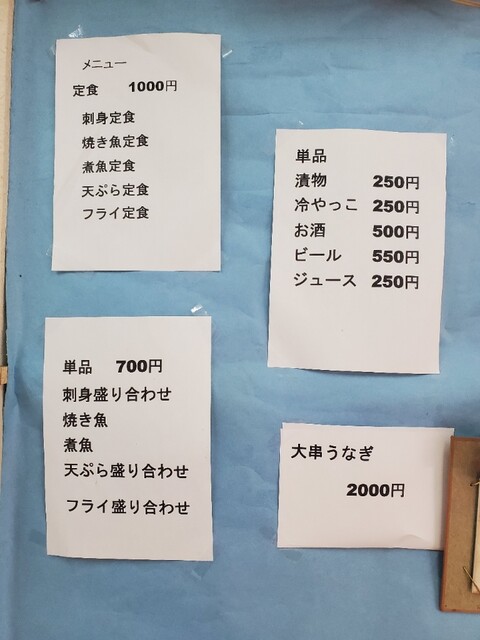 メニュー
定食 1000円
刺身定食
焼き魚定食
煮魚定食
天ぷら定食
フライ定食
単品
漬物 250円
冷やっこ 250円
お酒 500円
ビール 550円
ジュース 250円
単品 700円
刺身盛り合わせ
焼き魚
煮魚
天ぷら盛り合わせ
フライ盛り合わせ
大串うなぎ
2000円